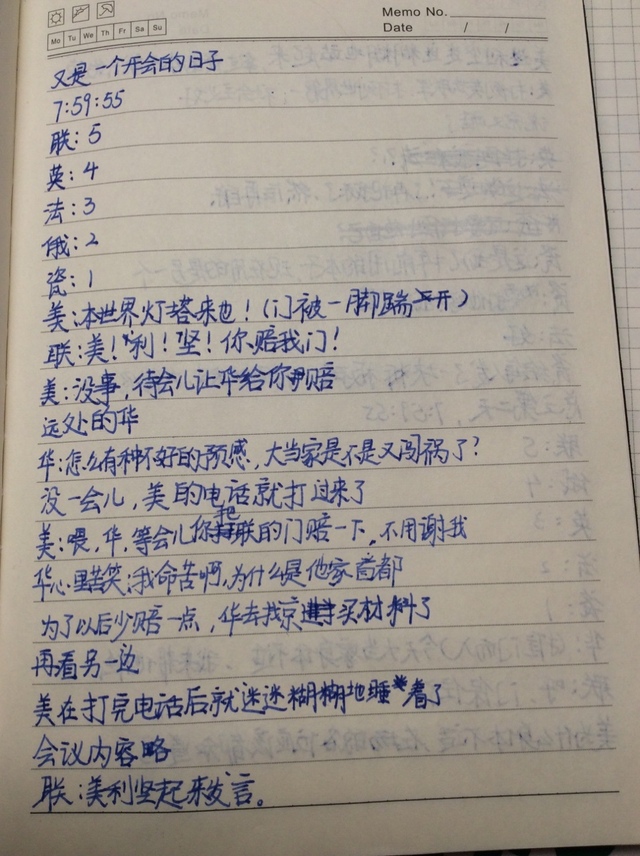 Memo No.
Mo Tu We Th Fr Sa Su
Date / /
又是一个开会的日子
7:59:55
联:5
英:4
法:3
俄:2
瓷:1
美:本世界灯塔来也!(门被一脚踹开)
联:美!利!坚!你赔我门!
美:没事,待会儿让华给你赔
远处的华
华:怎么有种不好的预感,大当家是不是又闯祸了?
没一会儿,美的电话就打过来了
美:喂,华,等会儿你把联的门赔一下,不用谢我
华心里苦笑:我命苦啊,为什么是他家首都
为了以后少赔一点,华去找京买材料了
再看另一边
美在打完电话后就迷迷糊糊地睡着了
会议内容略
联:美利坚起来发言。